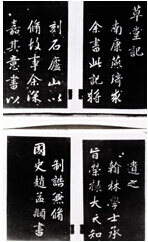 草堂記
南康燕濟
余書此記將
刻石廬山以
備故事余深
嘉其意書以
遺之
翰林學士承
旨榮祿大夫知
制誥兼脩
國史趙孟頫書